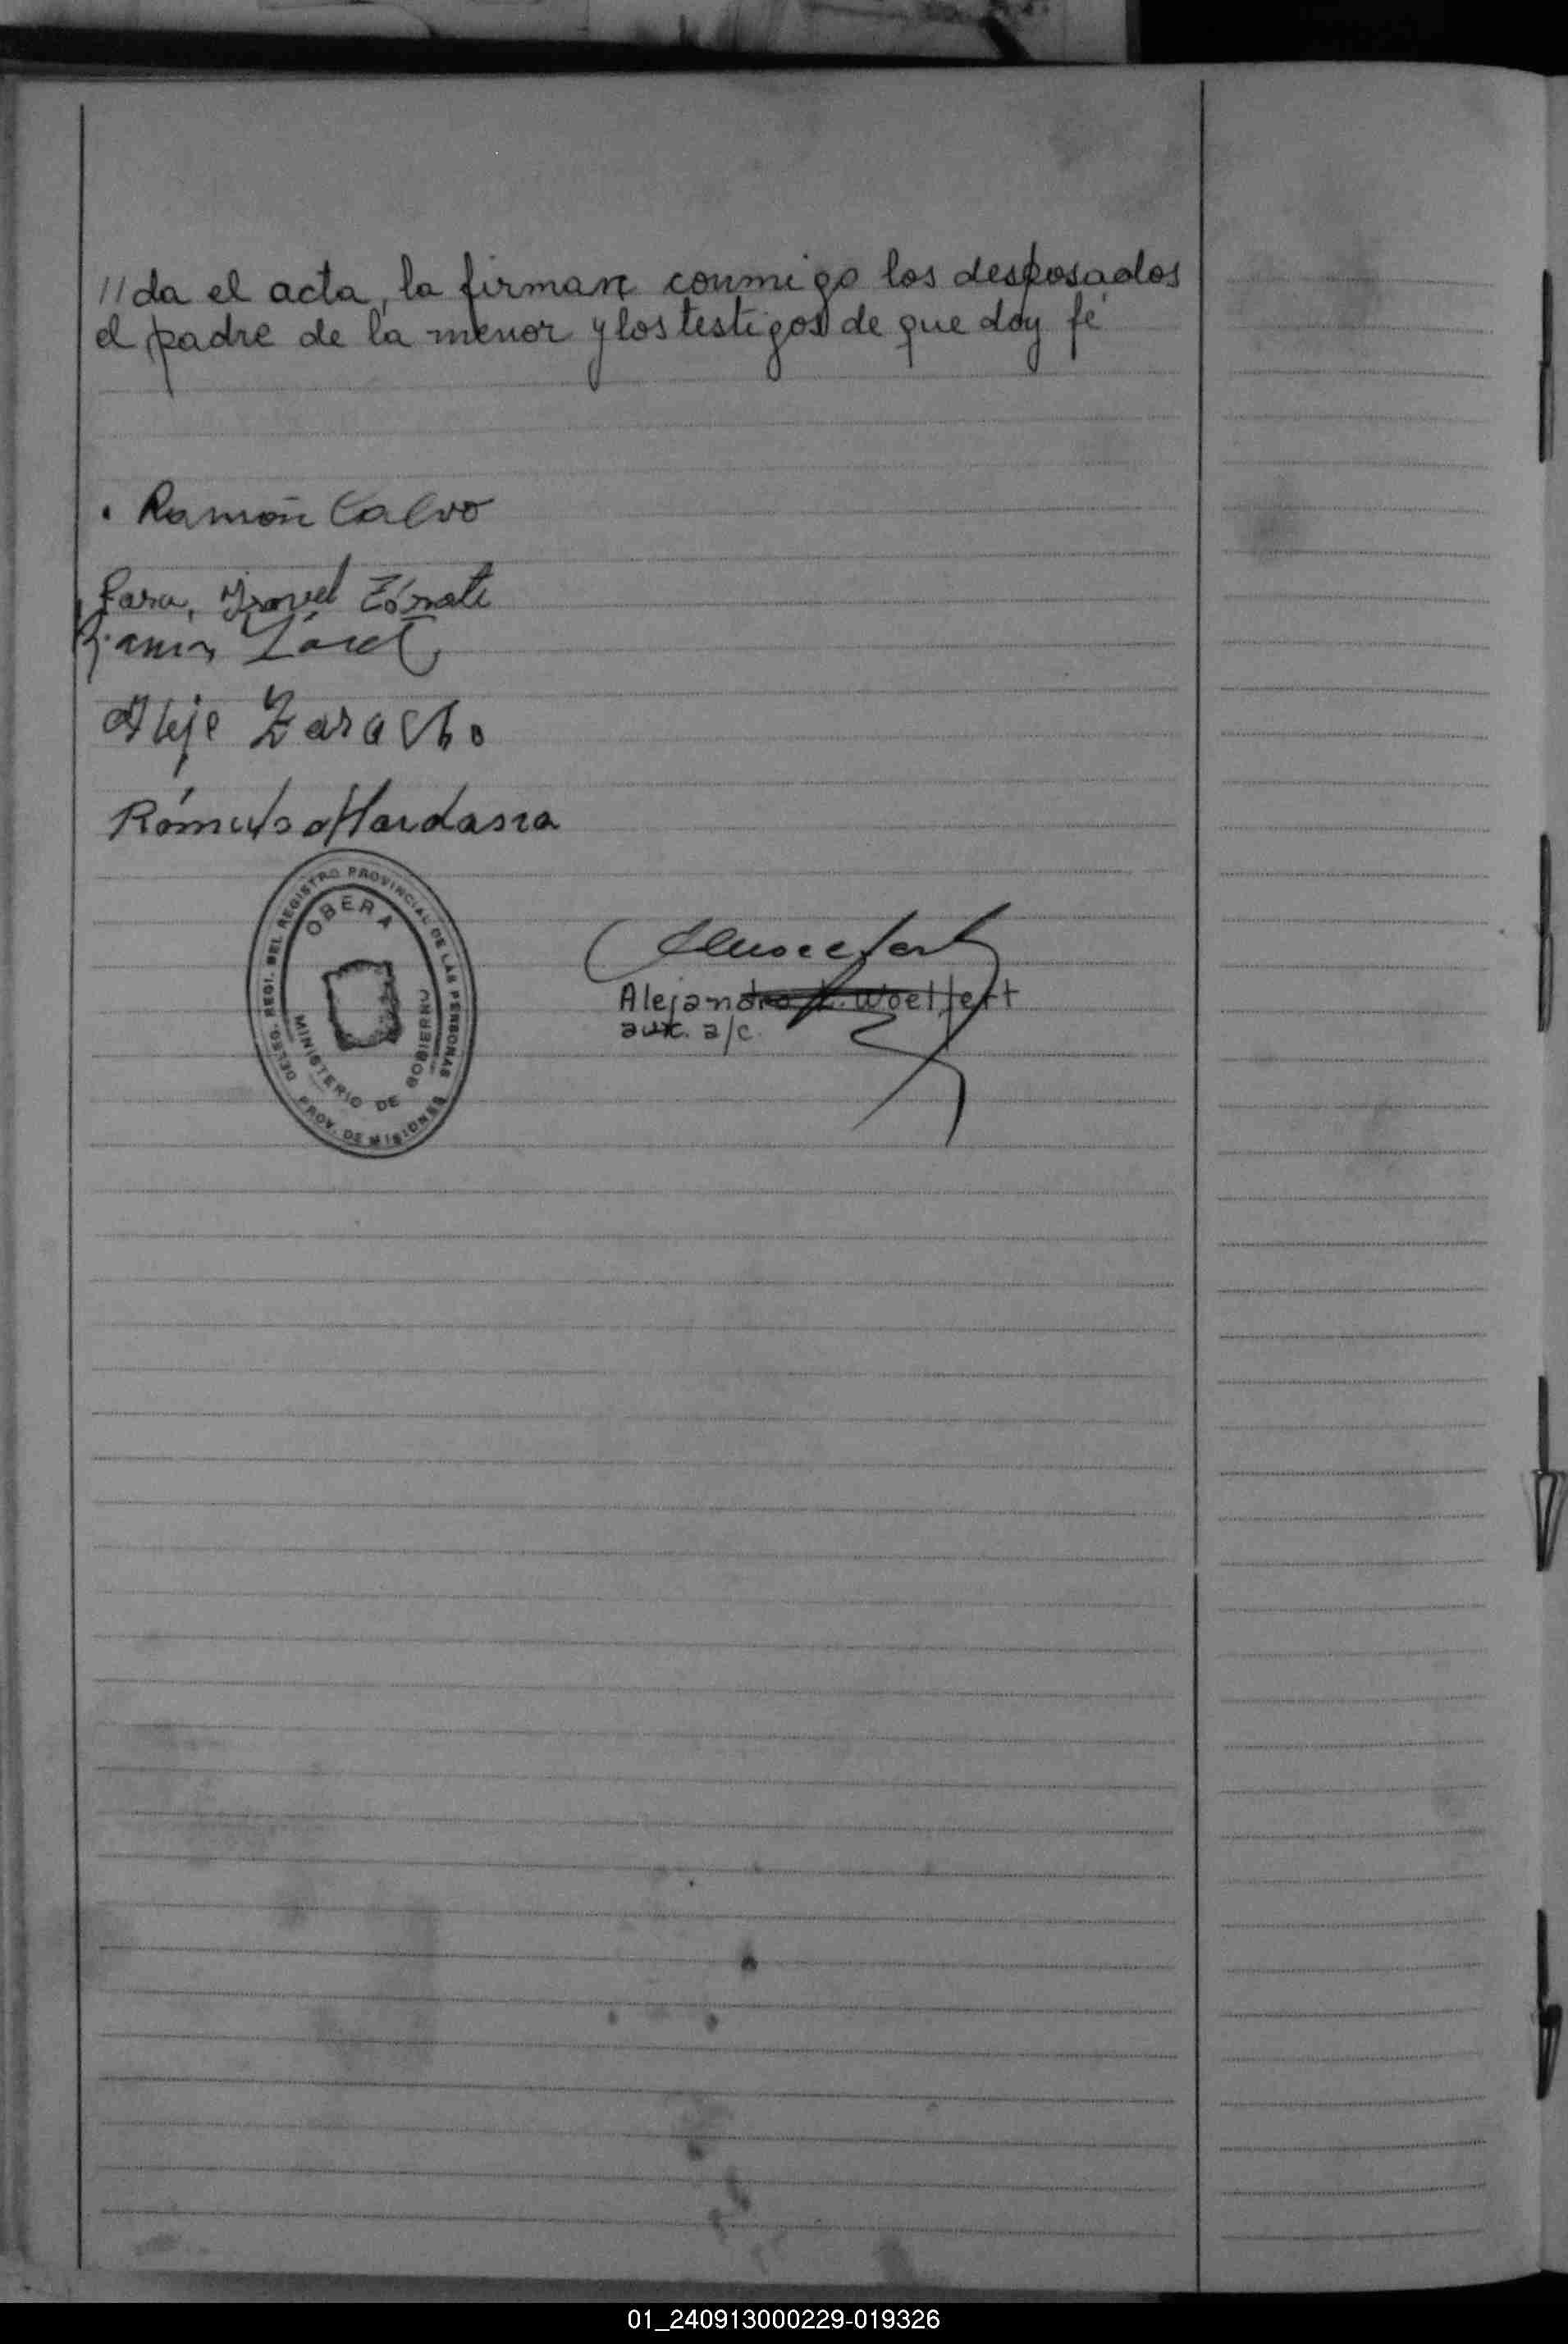 //da el acta, la firman conmigo los desposados
el padre de la menor y los testigos de que doy fé
Ramón Calvo
Sara, Isavel Zárate
Ramón
Aleje Zaracho
Rómulo
DELEG. REGI. DEL REGISTRO PROVINCIAL DE LAS PERSONAS
OBERA
MINISTERIO DE GOBIERNO
PROV. DE MISIONES
Alejandro L. Woelfert
aux. a/c.
01_240913000229-019326